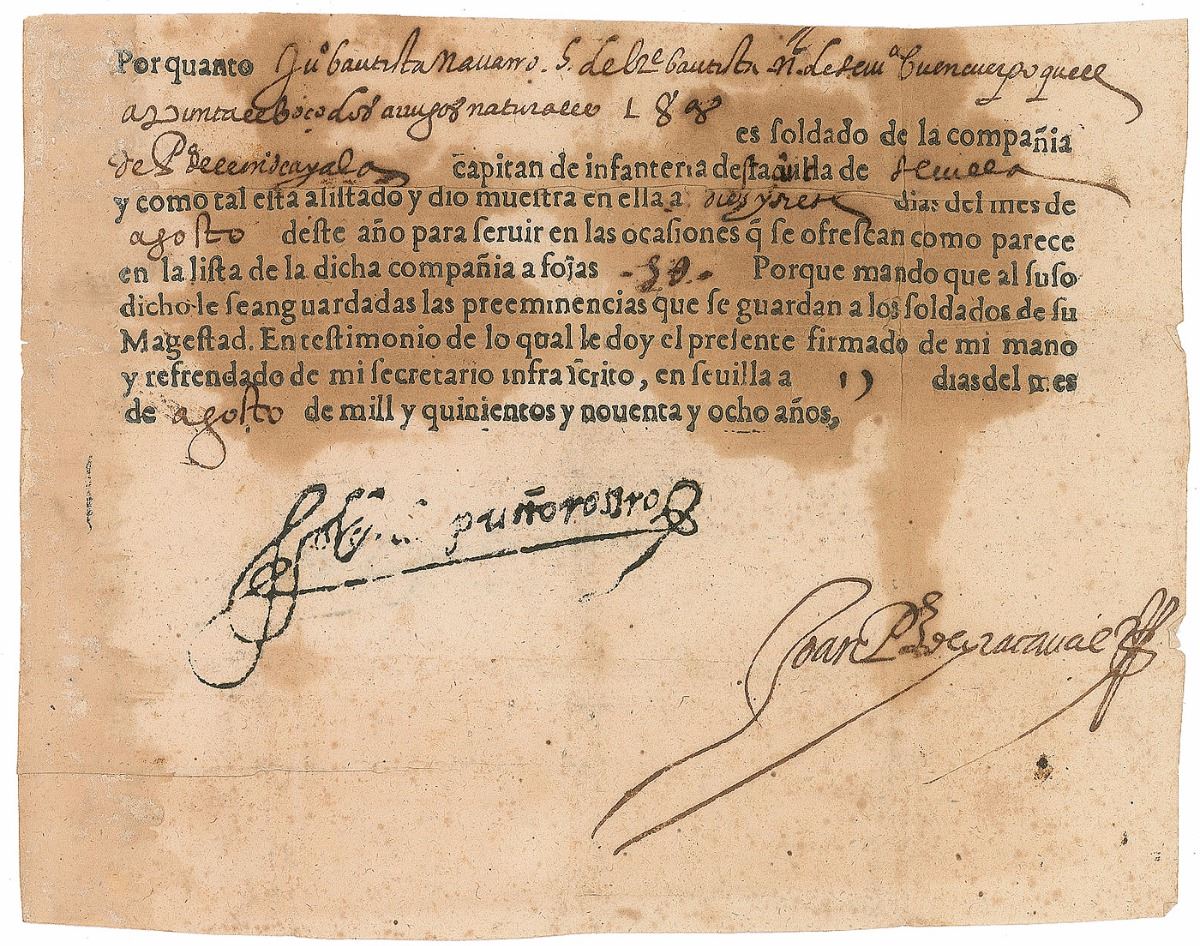 Por quanto Juº bautista Navarro. S. de bautista nl de seuª buen cuerpo que le
apunta el boço dos naturales 18 aº
es soldado de la compañia
de Pº de capitan de infanteria desta villa de Seuilla
y como tal esta alistado y dio muestra en ella a diez y siete dias del mes de
agosto deste año para seruir en las ocasiones q̃ se ofrescan como parece
en la lista de la dicha compañia a fojas Porque mando que al suso
dicho le sean guardadas las preeminencias que se guardan a los soldados de su
Magestad. En testimonio de lo qual le doy el presente firmado de mi mano
y refrendado de mi secretario infrascrito, en seuilla a 17 dias del mes
de agosto de mill y quinientos y nouenta y ocho años,
puñorostro
Joan Pº